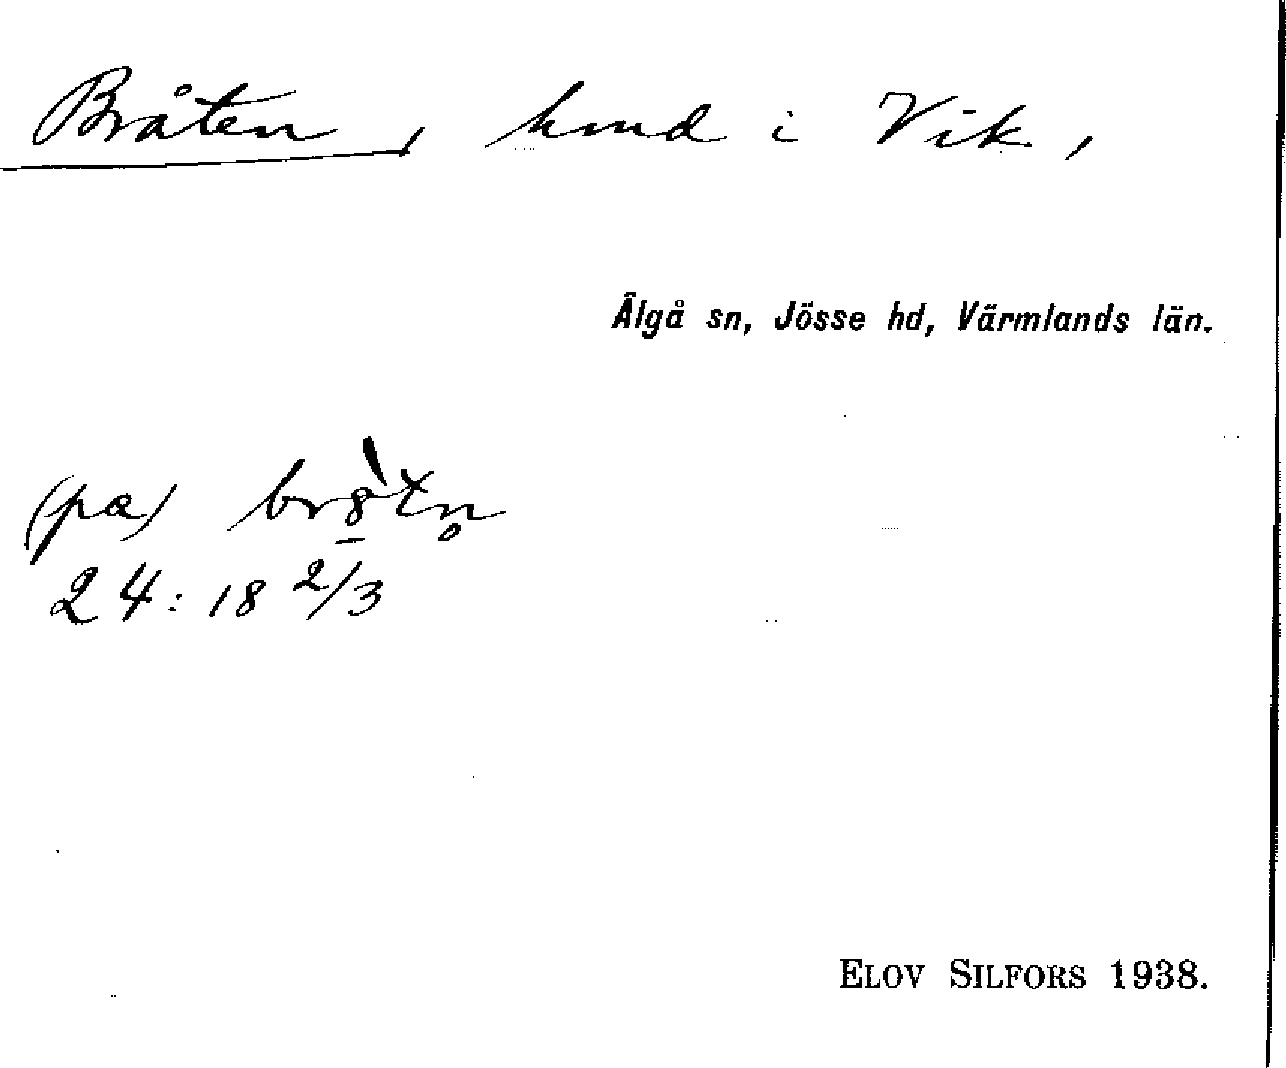 Bråten, hmd i Vik,
Älgå sn, Jösse hd, Värmlands län.
(pæ) br8̲̀tn̥
24:18 2/3
ELOV SILFORS 1938.